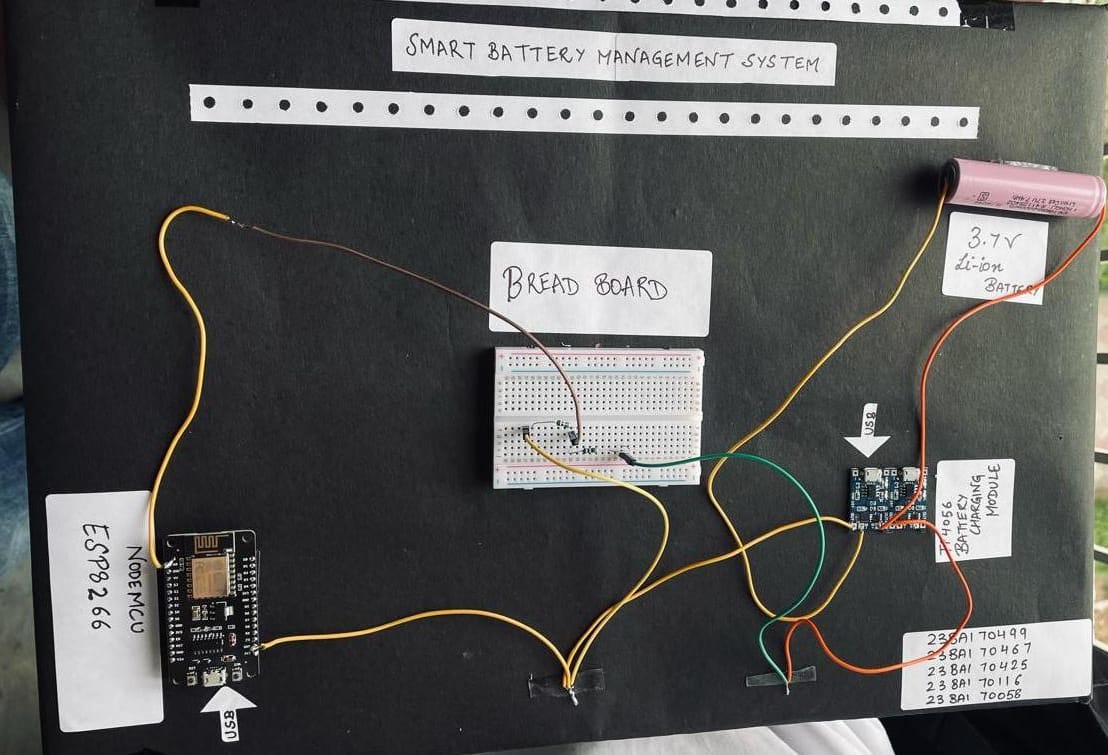 SMART BATTERY MANAGEMENT SYSTEM
3.7V
Li-ion
BATTERY
BREAD BOARD
USB
TP4056
BATTERY
CHARGING
MODULE
NODEMCU
ESP8266
USB
23BAI 70499
23BAI 70467
23BAI 70425
23BAI 70116
23BAI 70058